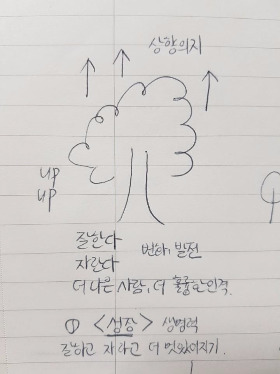 상향의지
up
up
잘한다 변화, 발전
자란다
더 나은 사람, 더 훌륭한 인격.
① <성장> 생명력
잘하고 자라고 더 멋있어지기.